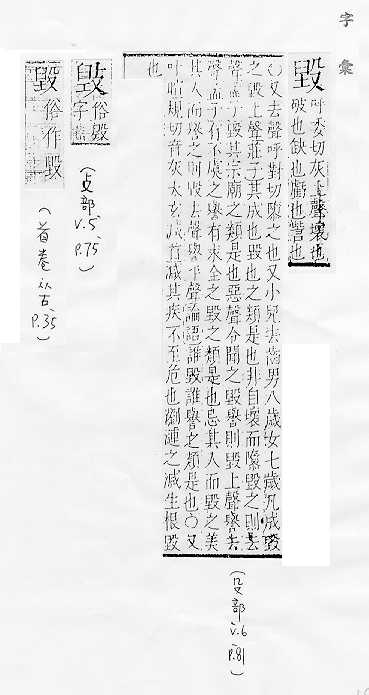 字彙
毀
呼委切灰上聲壞也
破也缺也虧也訾也
○又去聲呼對切隳之也又小兒去齒男八歲女七歲凡成毀
之毀上聲莊子其成也毀也之類是也非自壞而隳毀之則去
聲孟子毀其宗廟之類是也惡聲令聞之毀譽則毀上聲譽去
聲孟子有不虞之譽有求全之毀之類是也忌其人而毀之美
其人而譽之則毀去聲譽平聲論語誰毀誰譽之類是也○又
叶 規切音灰太玄減 減其疾不至危也劉 之減生根毀
也
(殳部
V.6
P.81)
毀
俗毀
字
(攴部
V.5
P.75)
毁
俗作毀
(首卷 从古
P.35)